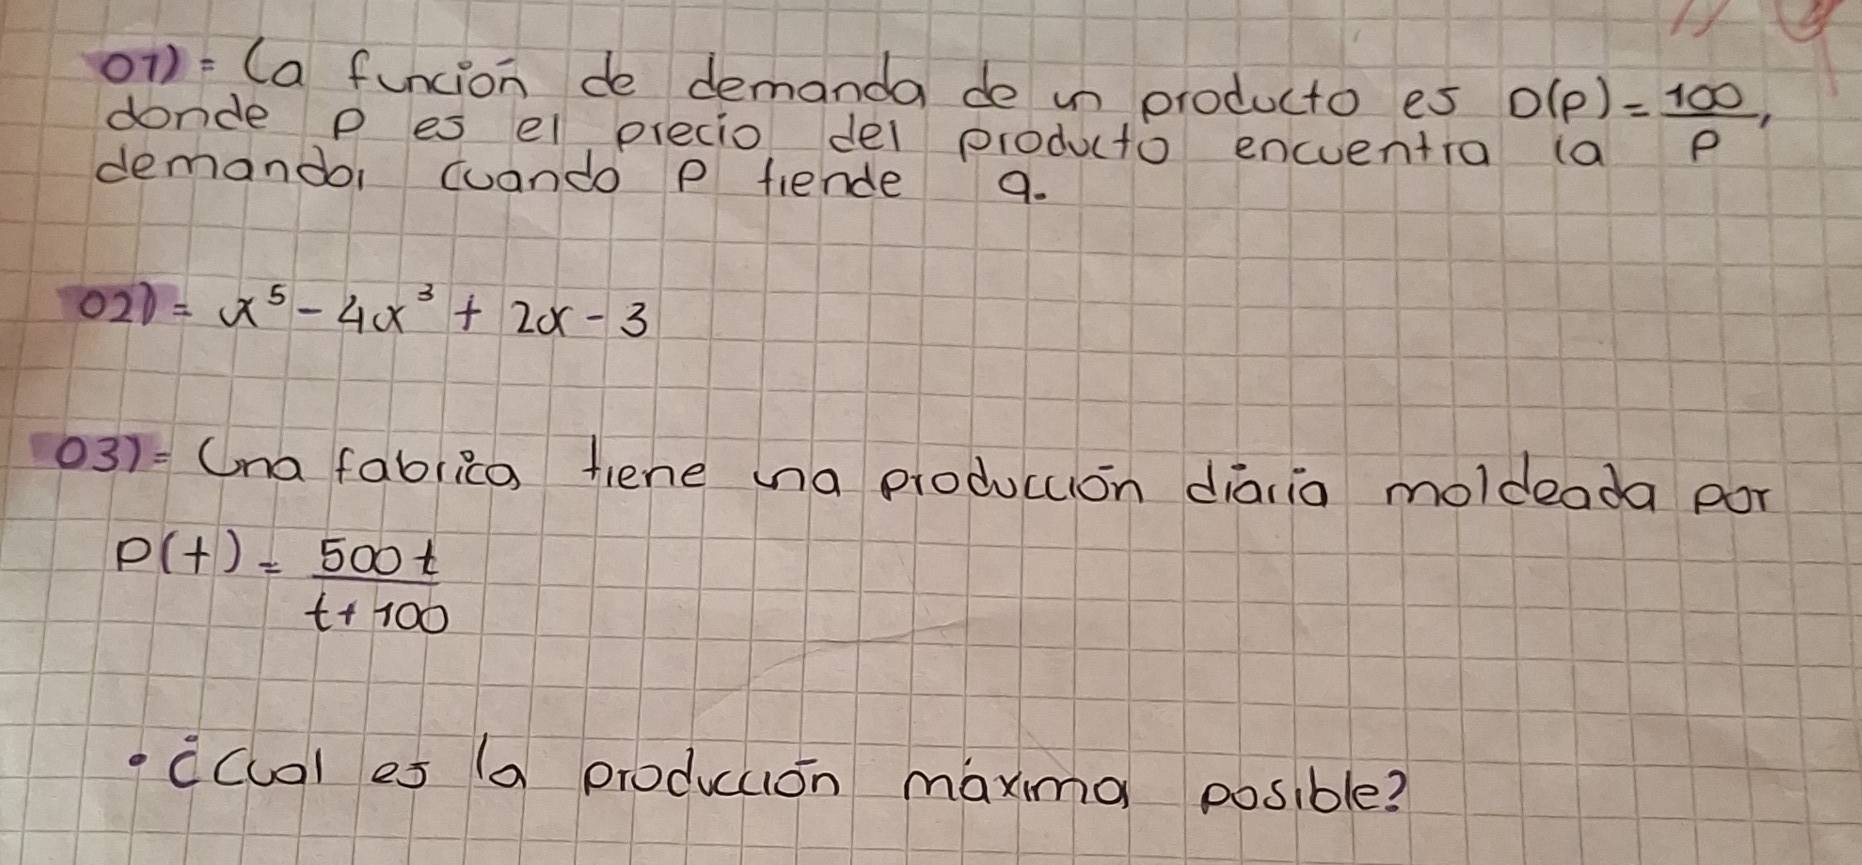 01)= La función de demanda de un producto es D(p) = 100/P,
donde P es el precio del producto encuentra la
demanda, cuando P tiende 9.
02)= x⁵ - 4x³ + 2x - 3
03)= Una fabrica tiene una producción diaria moldeada por
P(t) = 500t / t + 100
• ¿Cual es la producción máxima posible?